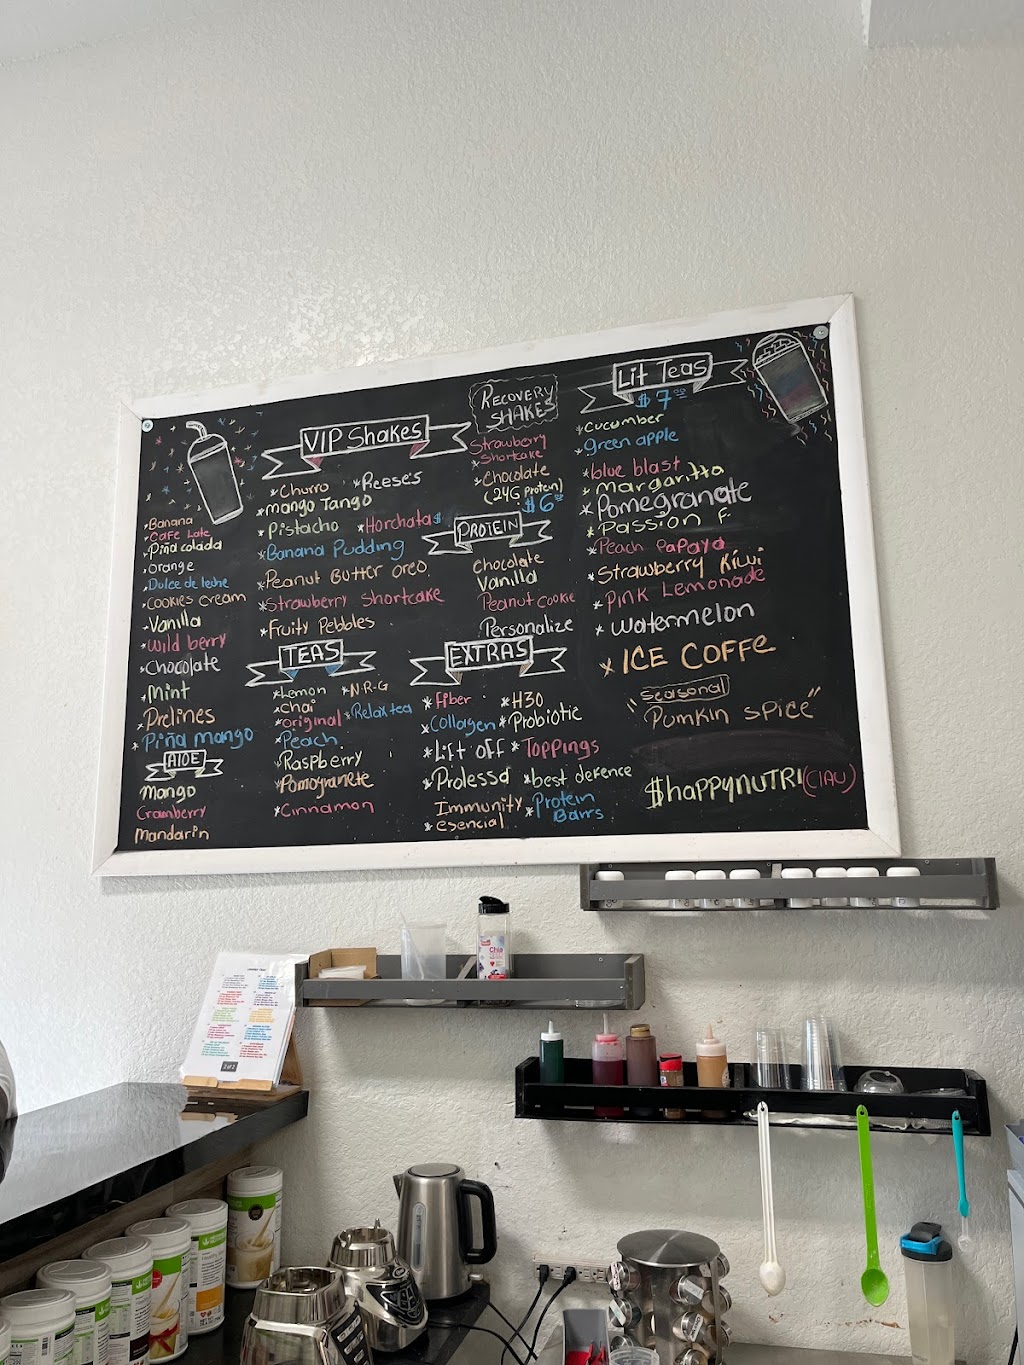 VIP Shakes
Banana
Cafe Late
Piña colada
Orange
Dulce de leche
Cookies Cream
Vanilla
Wild berry
Chocolate
Mint
Prelines
Piña mango
Churro
Reese's
mango Tango
Pistacho
Horchata$
Banana Pudding
Peanut Butter oreo
Strawberry Shortcake
Fruity Pebbles
ALOE
Mango
Cramberry
Mandarin
TEAS
Lemon
N-R-G
Chai
original
Relax tea
Peach
Raspberry
Pomogranete
Cinnamon
RECOVERY
SHAKES
Strawberry
Shortcake
Chocolate
(24G Protein)
$6
PROTEIN
Chocolate
Vanilla
Peanut Cookie
Personalize
EXTRAS
Fiber
H30
Collagen
Probiotic
Lift off
Toppings
Prolessa
best defence
Immunity
esencial
Protein
Barrs
Lit Teas
$7.00
cucumber
green apple
blue blast
Margarita
Pomegranate
Passion F.
Peach Papaya
Strawberry Kiwi
Pink Lemonade
watermelon
ICE COFFe
Seasonal
"Pumkin spice"
$happynutri(CIAU)
Chia
2 of 2